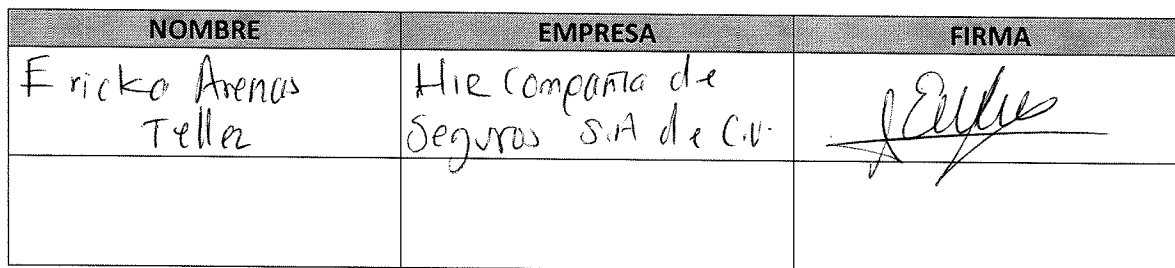 NOMBRE EMPRESA FIRMA
Ericka Arenas Hir Compañia de
Tellez Seguros S.A de C.V.